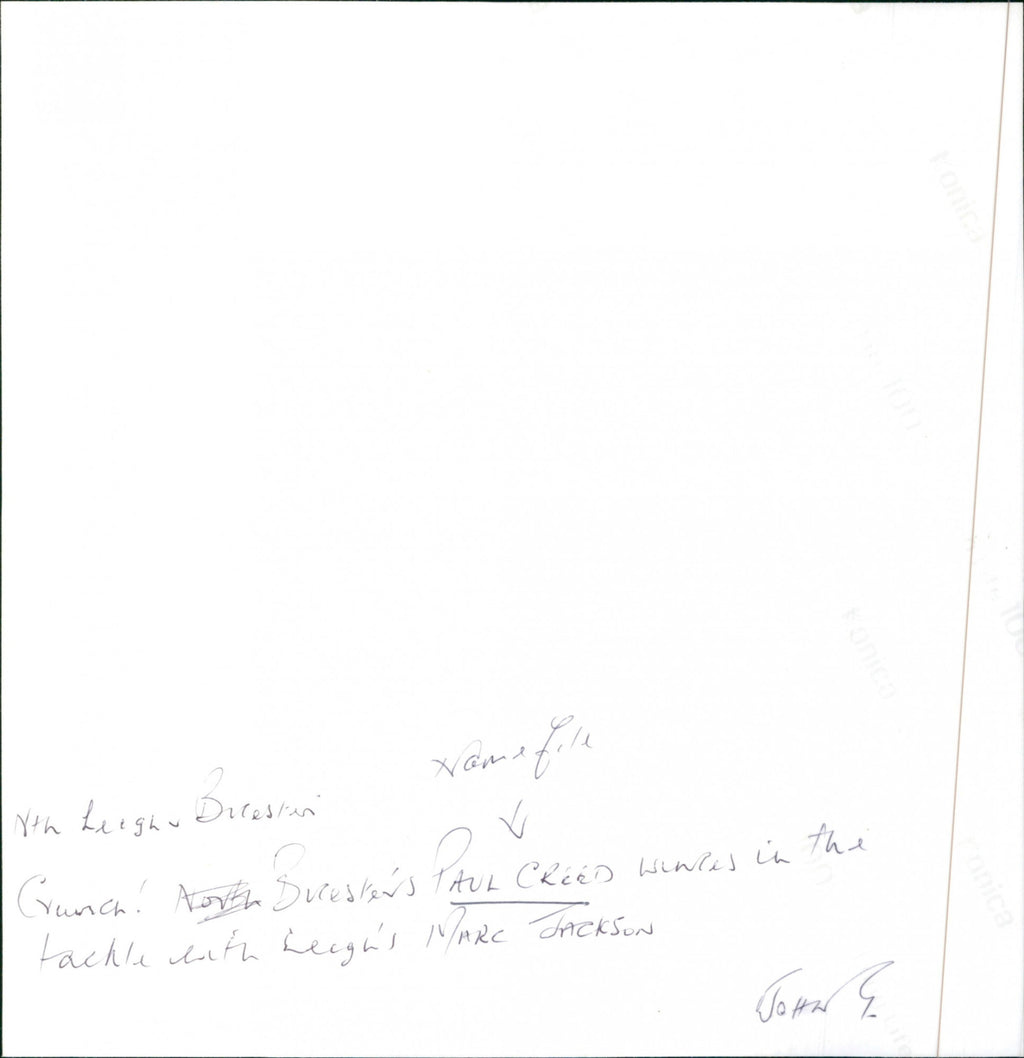 Name file
Nth Leigh v Bicester
Crunch! North Bicester's PAUL CREED winces in the
tackle with Leigh's MARC JACKSON
JOHN G
Konica
100
Konica
100
Konica